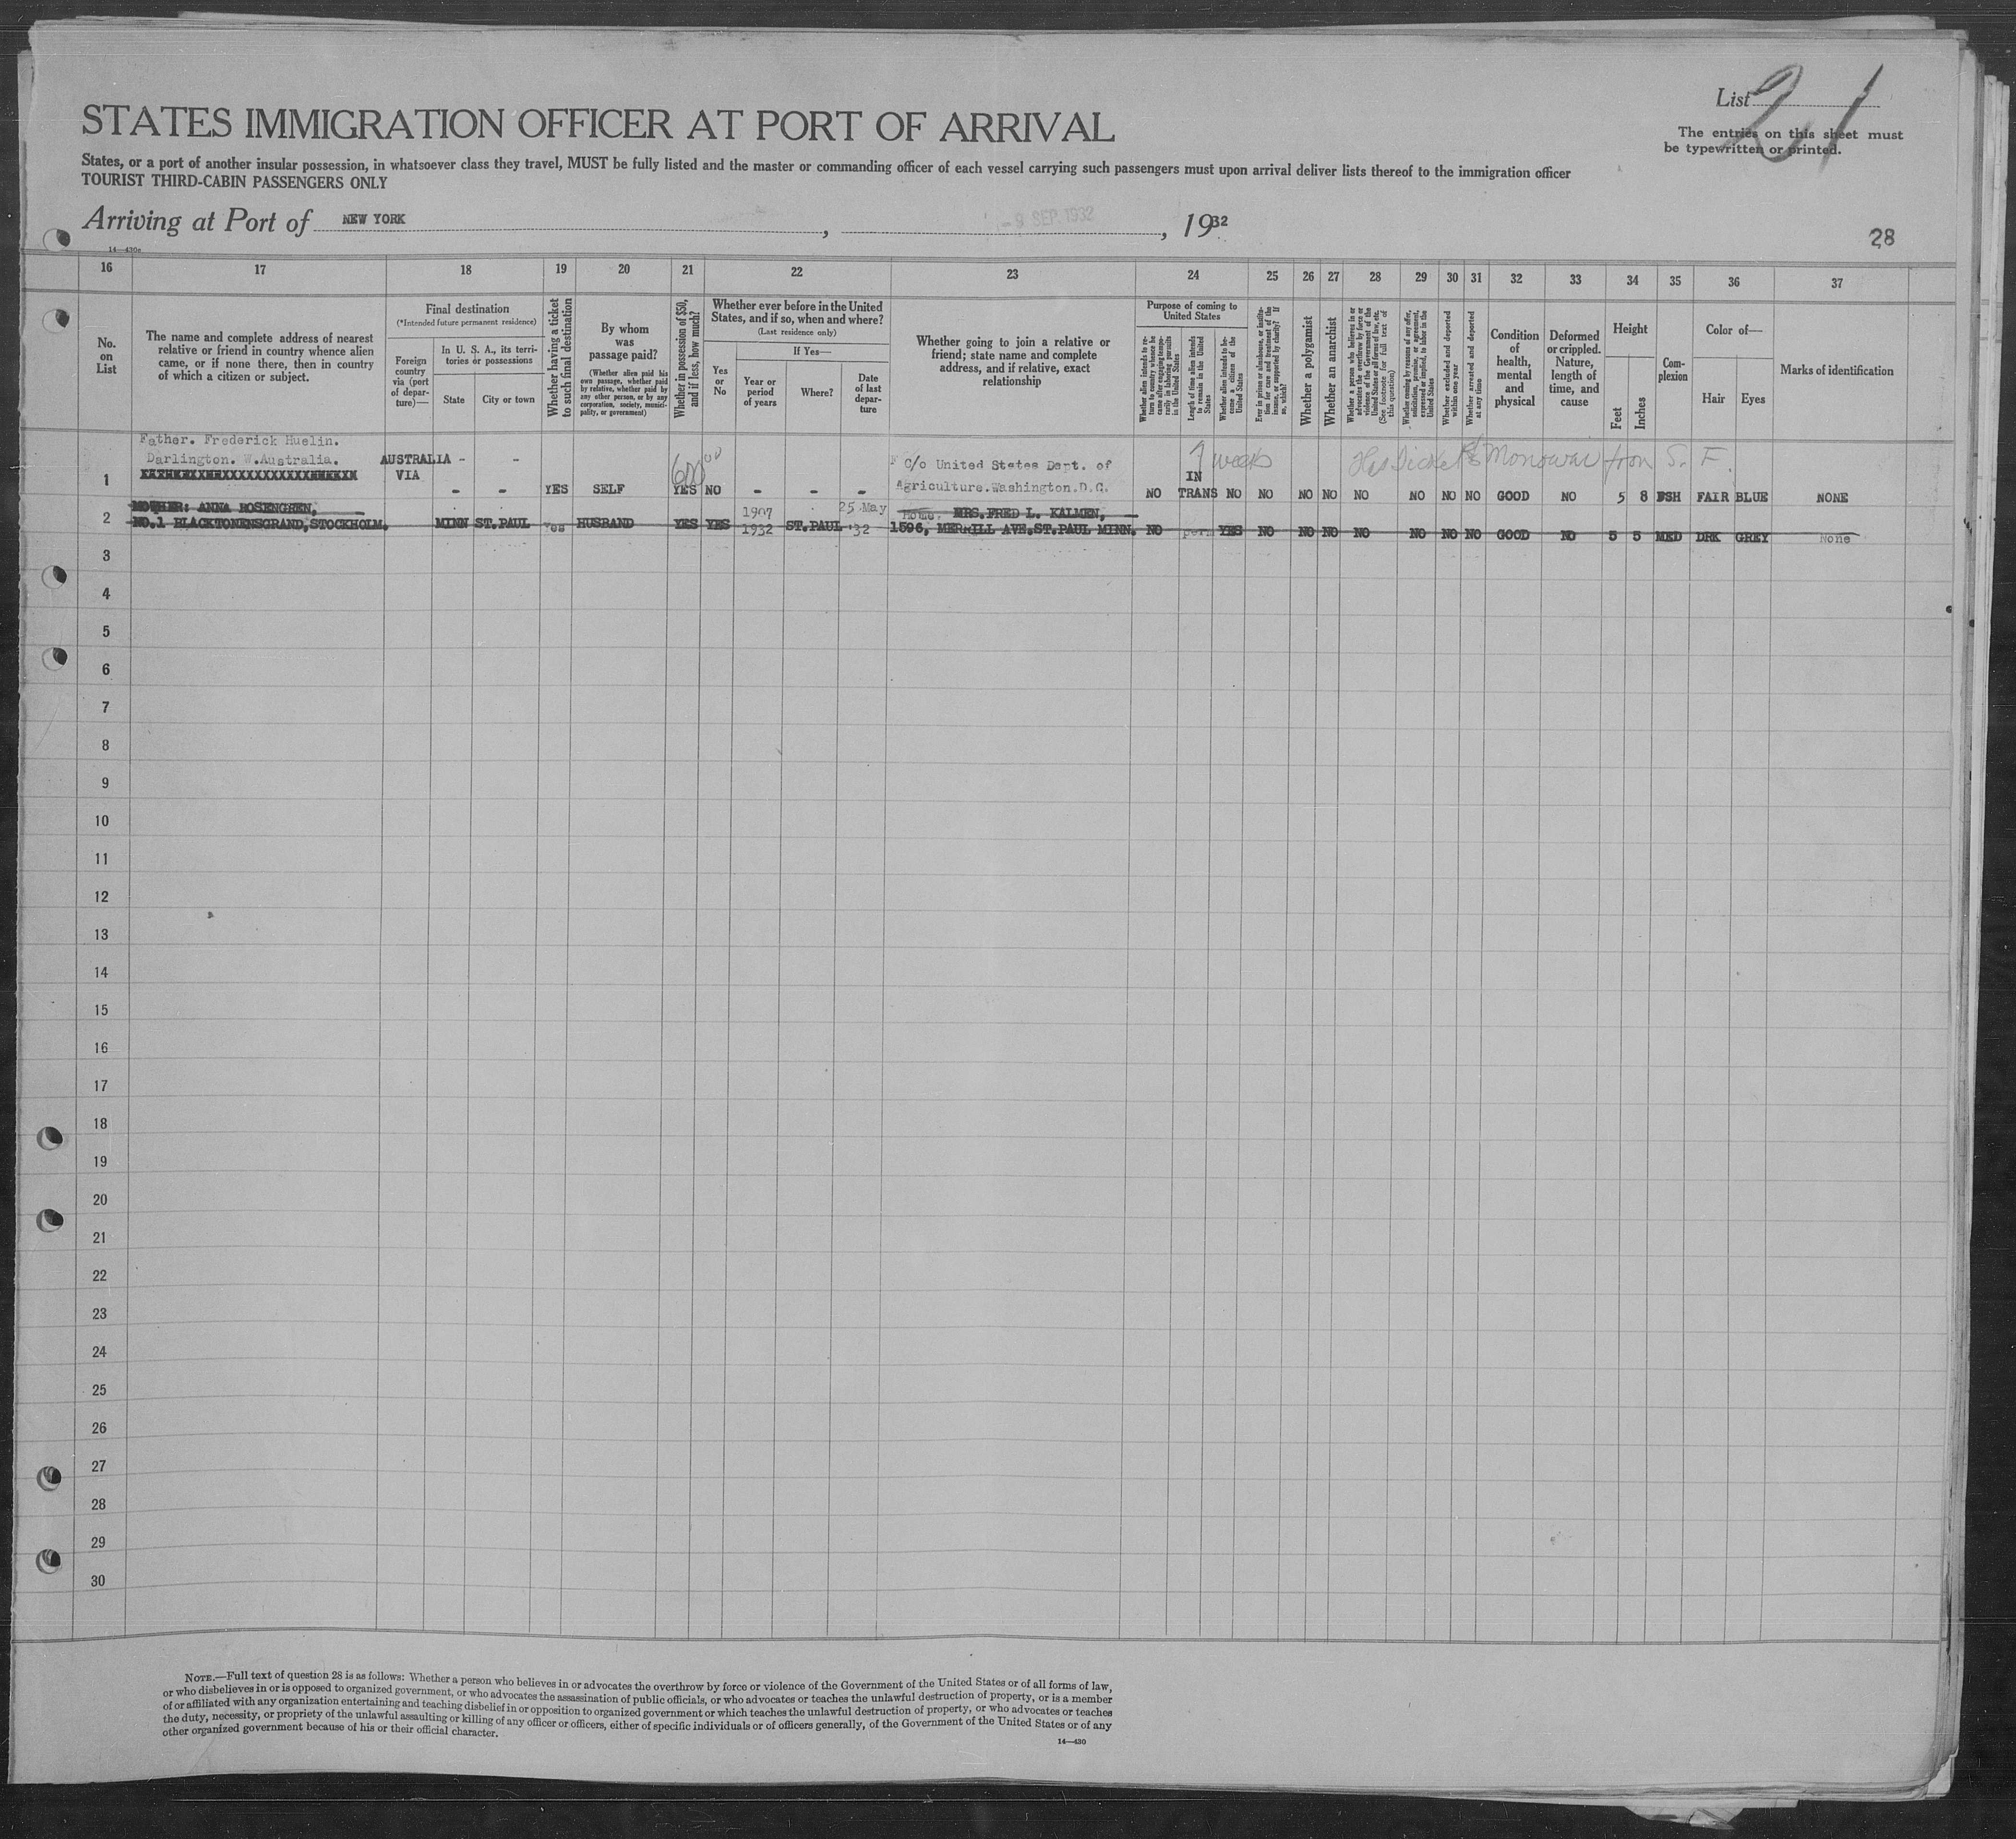 List 21
The entries on this sheet must
be typewritten or printed.
STATES IMMIGRATION OFFICER AT PORT OF ARRIVAL
States, or a port of another insular possession, in whatsoever class they travel, MUST be fully listed and the master or commanding officer of each vessel carrying such passengers must upon arrival deliver lists thereof to the immigration officer
TOURIST THIRD-CABIN PASSENGERS ONLY
Arriving at Port of NEW YORK, - 9 SEP. 1932, 1932
28
14—430c
16 17 18 19 20 21 22 23 24 25 26 27 28 29 30 31 32 33 34 35 36 37
No. on List
The name and complete address of nearest
relative or friend in country whence alien
came, or if none there, then in country
of which a citizen or subject.
Final destination
(*Intended future permanent residence)
Foreign country via (port of departure)—
In U. S. A., its territories or possessions
State
City or town
Whether having a ticket to such final destination
By whom was passage paid?
(Whether alien paid his own passage, whether paid by relative, whether paid by any other person, or by any corporation, society, municipality, or government)
Whether in possession of $50, and if less, how much?
Whether ever before in the United States, and if so, when and where?
(Last residence only)
If Yes—
Yes or No
Year or period of years
Where?
Date of last departure
Whether going to join a relative or
friend; state name and complete
address, and if relative, exact
relationship
Purpose of coming to United States
Whether alien intends to return to country whence he came after engaging temporarily in laboring pursuits in the United States
Length of time alien intends to remain in the United States
Whether alien intends to become a citizen of the United States
Ever in prison or almshouse, or institution for care and treatment of the insane, or supported by charity? If so, which?
Whether a polygamist
Whether an anarchist
Whether a person who believes in or advocates the overthrow by force or violence of the Government of the United States or all forms of law, etc. (See footnote for full text of this question)
Whether coming by reasons of any offer, solicitation, promise, or agreement, expressed or implied, to labor in the United States
Whether excluded and deported within one year
Whether arrested and deported at any time
Condition of health, mental and physical
Deformed or crippled. Nature, length of time, and cause
Height
Feet
Inches
Complexion
Color of—
Hair
Eyes
Marks of identification
Father. Frederick Huelin.
Darlington. W.Australia.
1 AUSTRALIA VIA - - - - YES SELF YES 600 00 NO - - - c/o United States Dept. of
Agriculture.Washington.D.C. NO IN TRANS NO NO NO NO NO NO NO NO GOOD NO 5 8 FSH FAIR BLUE NONE
weeks Has Ticket Monowai from S. F.
MOTHER: ANNA ROSENGREN,
2 NO.1 BLACKTONENSGRAND,STOCKHOLM. MINN ST.PAUL Yes HUSBAND YES YES 1907 1932 ST.PAUL 25 May '32 Home. MRS.FRED L. KALMEN,
1596, MERRILL AVE.ST.PAUL MINN. NO perm YES NO NO NO NO NO NO NO GOOD NO 5 5 MED DRK GREY None
3
4
5
6
7
8
9
10
11
12
13
14
15
16
17
18
19
20
21
22
23
24
25
26
27
28
29
30
NOTE.—Full text of question 28 is as follows: Whether a person who believes in or advocates the overthrow by force or violence of the Government of the United States or of all forms of law,
or who disbelieves in or is opposed to organized government, or who advocates the assassination of public officials, or who advocates or teaches the unlawful destruction of property, or is a member
of or affiliated with any organization entertaining and teaching disbelief in or opposition to organized government or which teaches the unlawful destruction of property, or who advocates or teaches
the duty, necessity, or propriety of the unlawful assaulting or killing of any officer or officers, either of specific individuals or of officers generally, of the Government of the United States or of any
other organized government because of his or their official character.
14—430